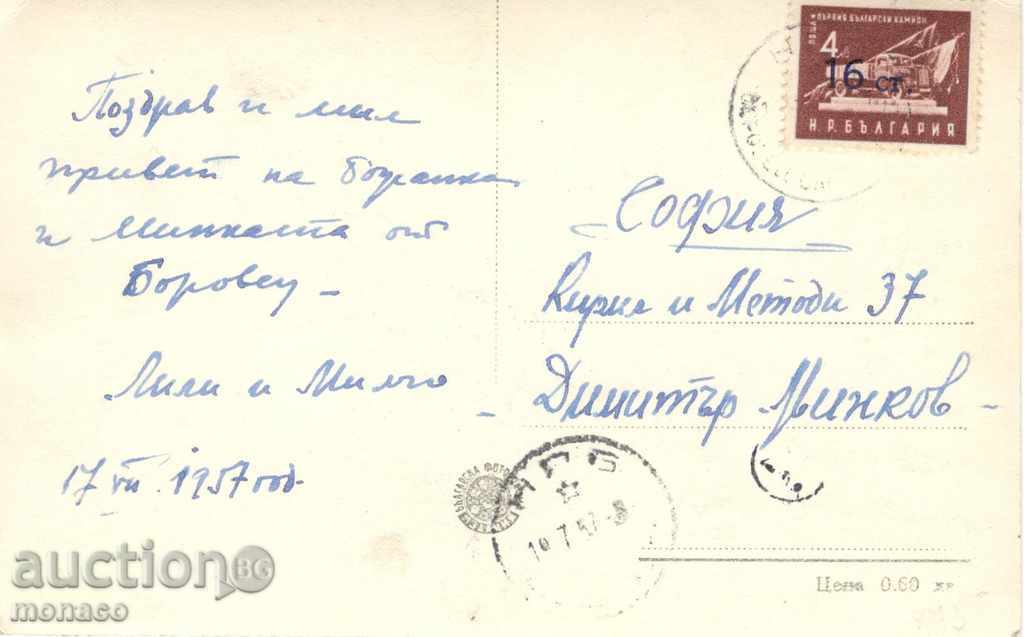 Поздрав и мил
привет на
и Минката от
Боровец –
Лили и Милчо
17 VII. 1957 год.
ПОЩА ★ ПЪРВИЯ БЪЛГАРСКИ КАМИОН
4
16 СТ.
Н.Р.БЪЛГАРИЯ
– София
Кирил и Методи 37
– Димитър Минков –
БЪЛГАРСКА ФОТО
НРБ
7.57-8
Цена 0.60 лв
auction BG
monaco